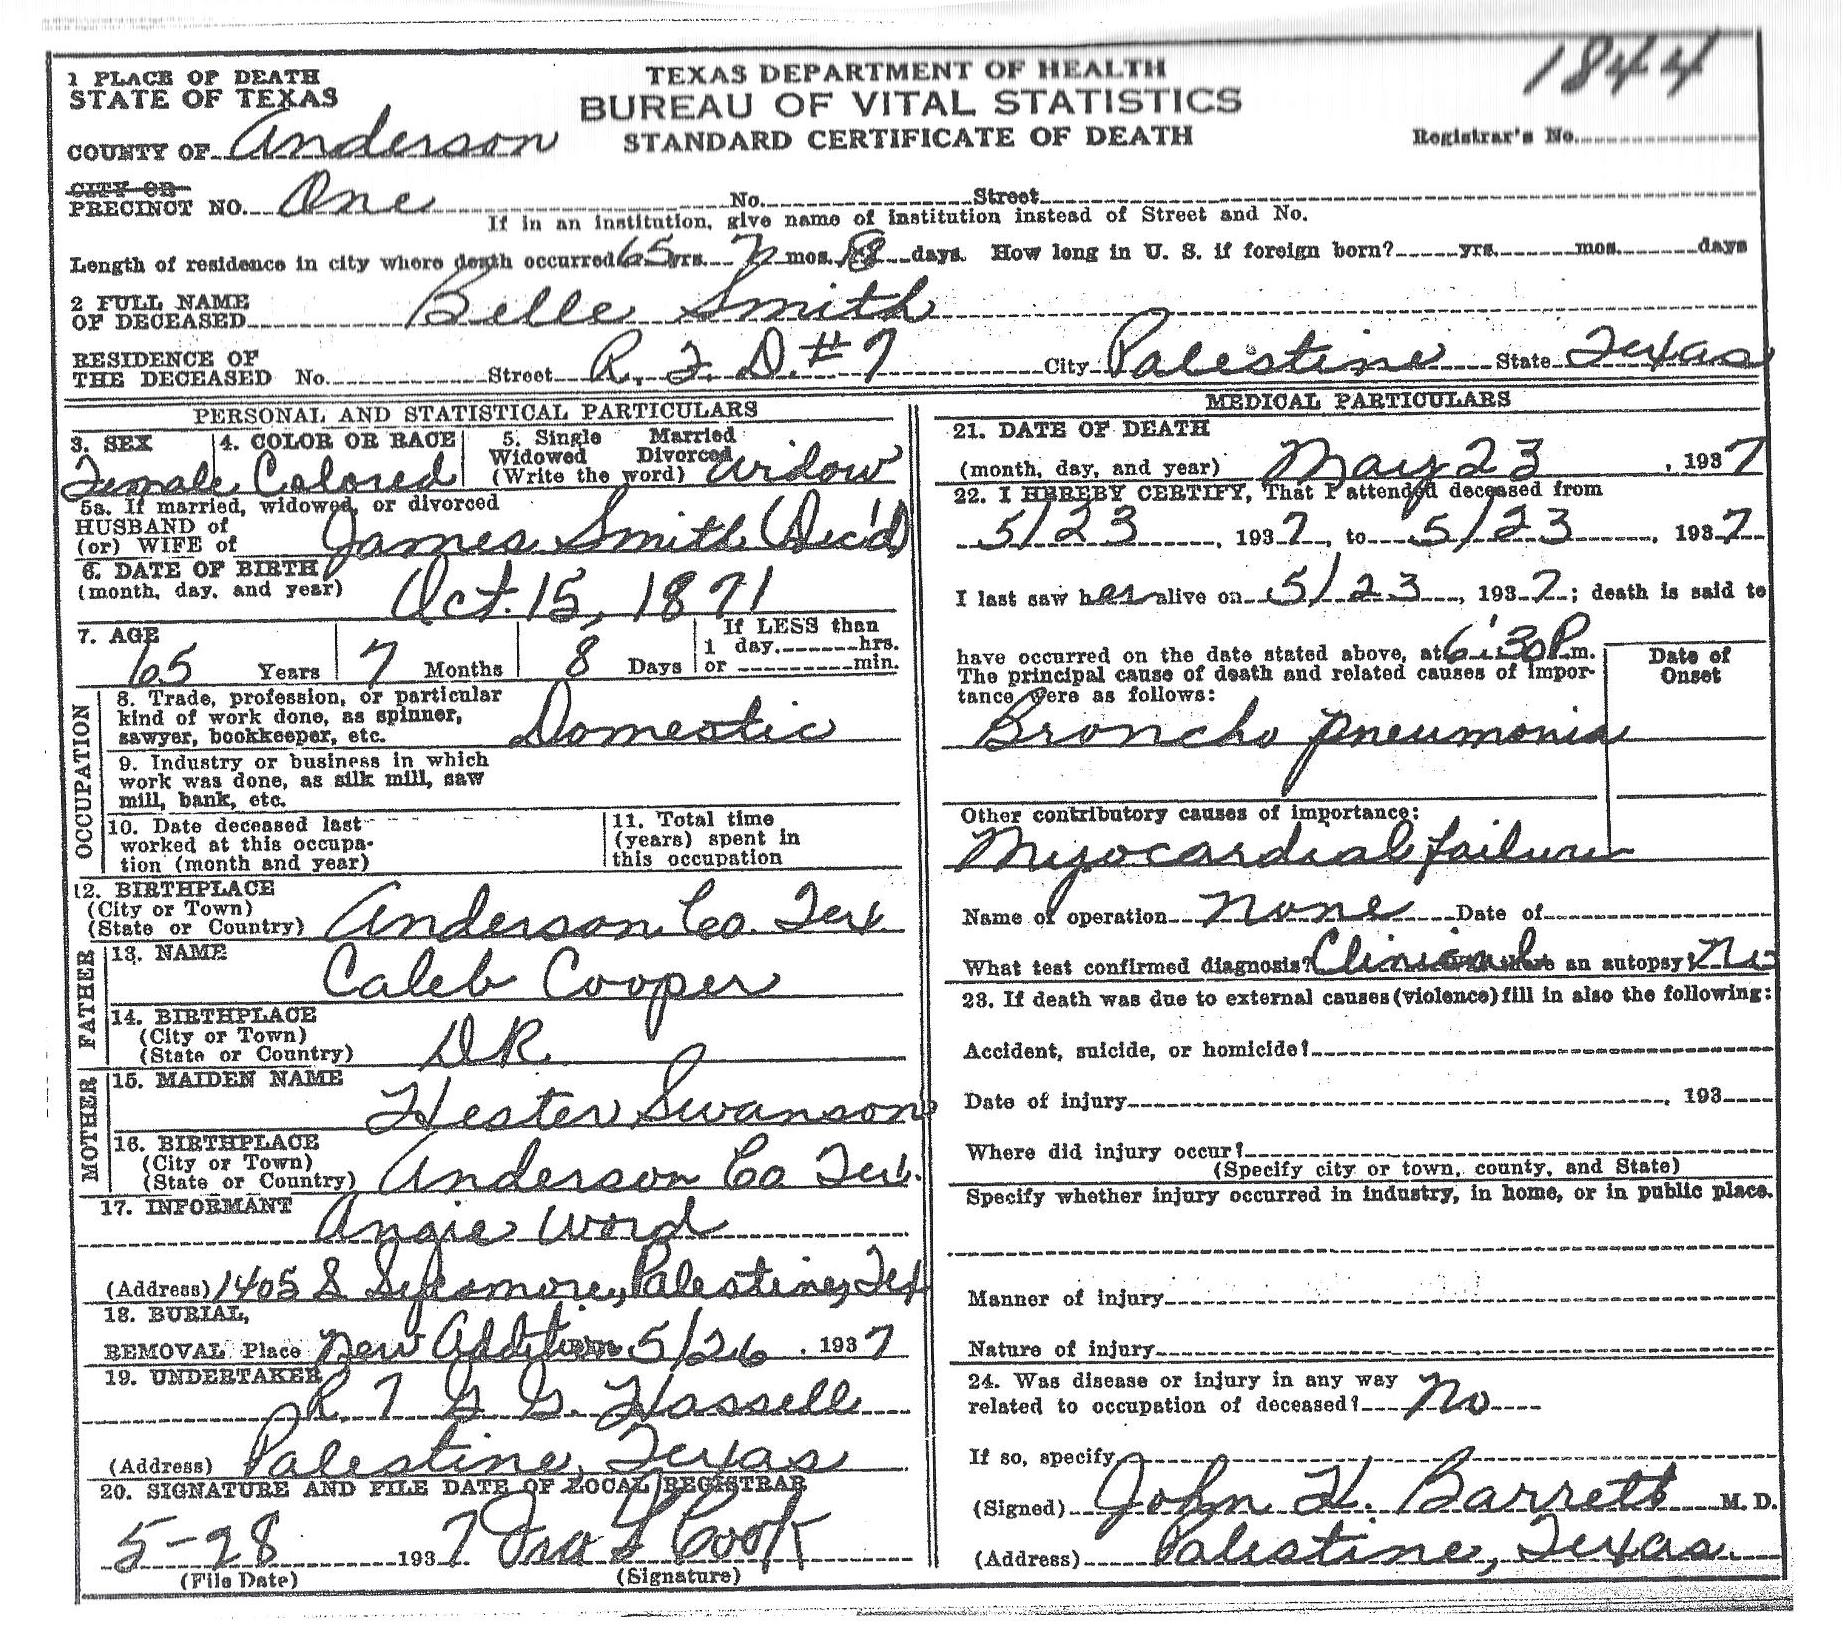 1844
1 PLACE OF DEATH
STATE OF TEXAS
TEXAS DEPARTMENT OF HEALTH
BUREAU OF VITAL STATISTICS
STANDARD CERTIFICATE OF DEATH
COUNTY OF Anderson
Registrar's No.
CITY OR
PRECINCT NO. One No. Street
If in an institution, give name of institution instead of Street and No.
Length of residence in city where death occurred 65 yrs. 7 mos. 8 days. How long in U. S. if foreign born? yrs. mos. days
2 FULL NAME
OF DECEASED Belle Smith
RESIDENCE OF
THE DECEASED No. Street R. F. D. #7 City Palestine State Texas
PERSONAL AND STATISTICAL PARTICULARS
3. SEX Female
4. COLOR OR RACE Colored
5. Single Married
Widowed Divorced
(Write the word) Widow
5a. If married, widowed, or divorced
HUSBAND of
(or) WIFE of James Smith (Dec'd)
6. DATE OF BIRTH
(month, day, and year) Oct. 15, 1871
7. AGE
65 Years 7 Months 8 Days
If LESS than
1 day, hrs.
or min.
OCCUPATION
8. Trade, profession, or particular
kind of work done, as spinner,
sawyer, bookkeeper, etc. Domestic
9. Industry or business in which
work was done, as silk mill, saw
mill, bank, etc.
10. Date deceased last
worked at this occupa-
tion (month and year)
11. Total time
(years) spent in
this occupation
12. BIRTHPLACE
(City or Town)
(State or Country) Anderson Co. Tex.
FATHER
13. NAME Caleb Cooper
14. BIRTHPLACE
(City or Town)
(State or Country) DR
MOTHER
15. MAIDEN NAME
Hester Swanson
16. BIRTHPLACE
(City or Town)
(State or Country) Anderson Co Tex.
17. INFORMANT
Angie Word
(Address) 1405 S Sycamore, Palestine, Tex
18. BURIAL,
REMOVAL Place New Addition 5/26, 1937
19. UNDERTAKER
R. T & G. Hassell
(Address) Palestine, Texas
20. SIGNATURE AND FILE DATE OF LOCAL REGISTRAR
5-28 1937 Ira L Cook
(File Date) (Signature)
MEDICAL PARTICULARS
21. DATE OF DEATH
(month, day, and year) May 23, 1937
22. I HEREBY CERTIFY, That I attended deceased from
5/23, 1937, to 5/23, 1937
I last saw her alive on 5/23, 1937; death is said to
have occurred on the date stated above, at 6:30 P.m.
The principal cause of death and related causes of impor-
tance were as follows:
Date of
Onset
Broncho pneumonia
Other contributory causes of importance:
Myocardial failure
Name of operation None Date of
What test confirmed diagnosis? Clinical there an autopsy? No
23. If death was due to external causes (violence) fill in also the following:
Accident, suicide, or homicide?
Date of injury , 193
Where did injury occur?
(Specify city or town, county, and State)
Specify whether injury occurred in industry, in home, or in public place.
Manner of injury
Nature of injury
24. Was disease or injury in any way
related to occupation of deceased? No
If so, specify
(Signed) John H. Barrett M. D.
(Address) Palestine, Texas.